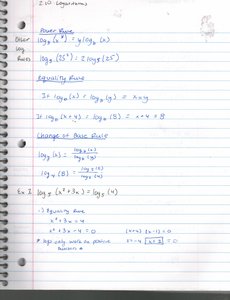 2.10 - Logarithms
Other log Rules
Power Rule
log_b(x^y) = y log_b(x)
log_5(25²) = 2 log_5(25)
Equality Rule
If log_b(x) = log_b(y) = x=y
If log_b(x+4) = log_b(8) = x+4=8
Change of Base Rule
log_y(x) = log_b(x) / log_b(y)
log_4(8) = log_2(8) / log_2(4)
Ex 1. log_5(x²+3x) = log_5(4)
Equality Rule
x²+3x=4
x²+3x-4=0 (x+4)(x-1)=0
* logs only work on positive numbers x=-4 x=1 =0